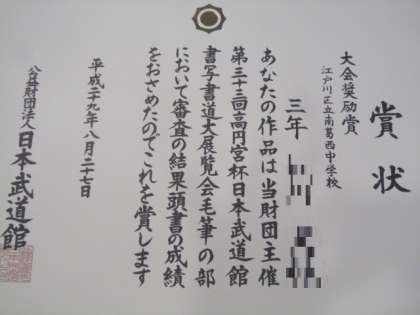 賞状
大会奨励賞
江戸川区立南葛西中学校
三年
あなたの作品は当財団主催
第三十三回高円宮杯日本武道館
書写書道大展覧会毛筆の部
において審査の結果頭書の成績
をおさめたのでこれを賞します
平成二十九年八月二十七日
公益財団法人日本武道館